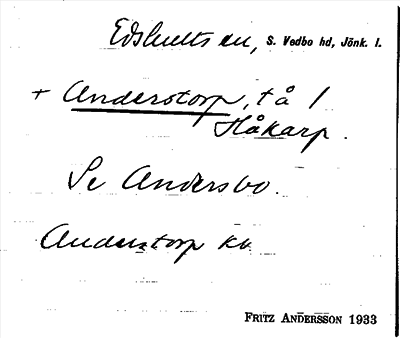 Edshults sn, S. Vedbo hd, Jönk. l.
+ Anderstorp, tå /
Håkarp.
Se Andersbo.
Anderstorp kv.
FRITZ ANDERSSON 1933